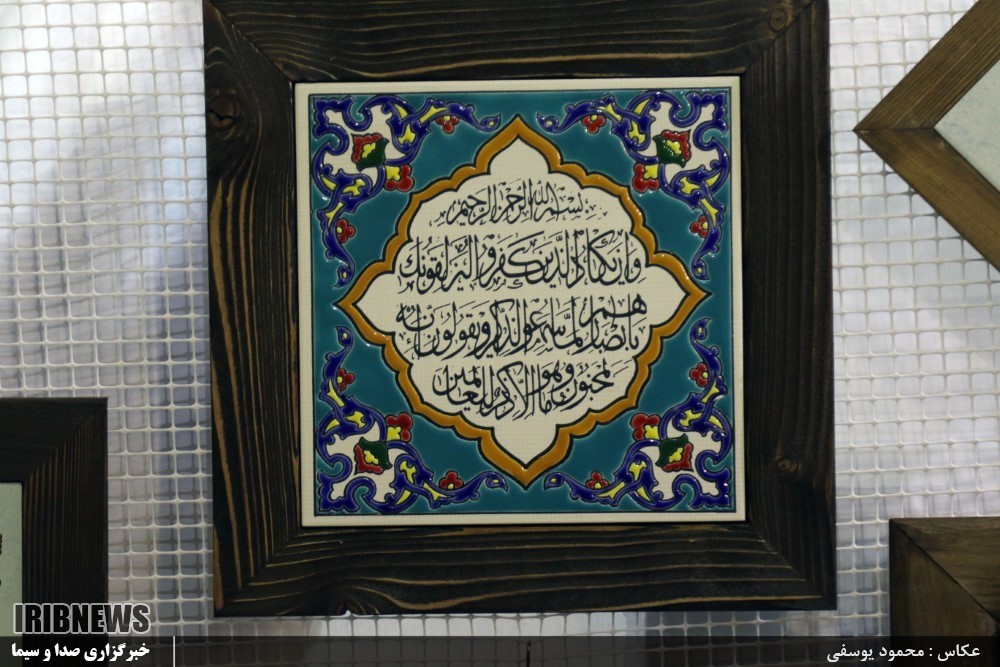 بسم الله الرحمن الرحیم
وَإِن يَكَادُ الَّذِينَ كَفَرُوا لَيُزْلِقُونَكَ
بِأَبْصَارِهِمْ لَمَّا سَمِعُوا الذِّكْرَ وَيَقُولُونَ إِنَّهُ
لَمَجْنُونٌ وَمَا هُوَ إِلَّا ذِكْرٌ لِلْعَالَمِينَ
IRIBNEWS
خبرگزاری صدا و سیما
عکاس : محمود یوسفی